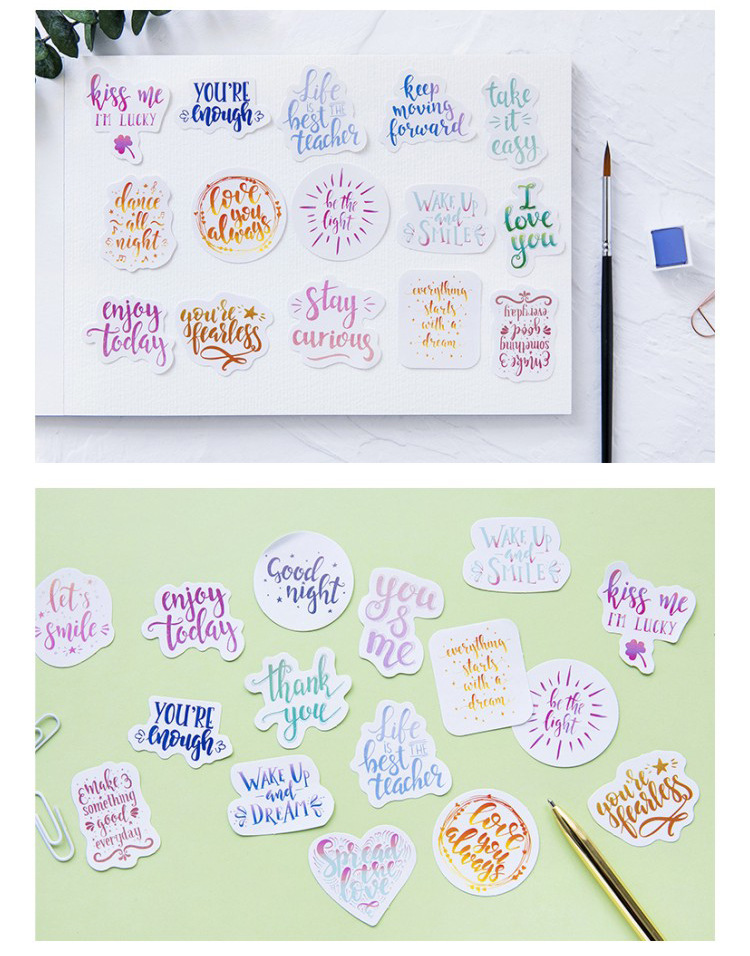 kiss me
I'M LUCKY
YOU'RE
enough
Life
IS THE
best
teacher
keep
moving
forward
take
it
easy
dance
all
night
love
you
always
be the
light
WAKE UP
and
SMILE
I
love
you
enjoy
today
you're
fearless
Stay
curious
everything
starts
with a
dream
make
something
good
everyday
let's
smile
enjoy
today
Good
night
you
&
me
WAKE UP
and
SMILE
kiss me
I'M LUCKY
YOU'RE
enough
thank
you
everything
starts
with a
dream
be the
light
make
something
good
everyday
WAKE UP
and
DREAM
Life
IS THE
best
teacher
you're
fearless
Spread
the
love
love
you
always